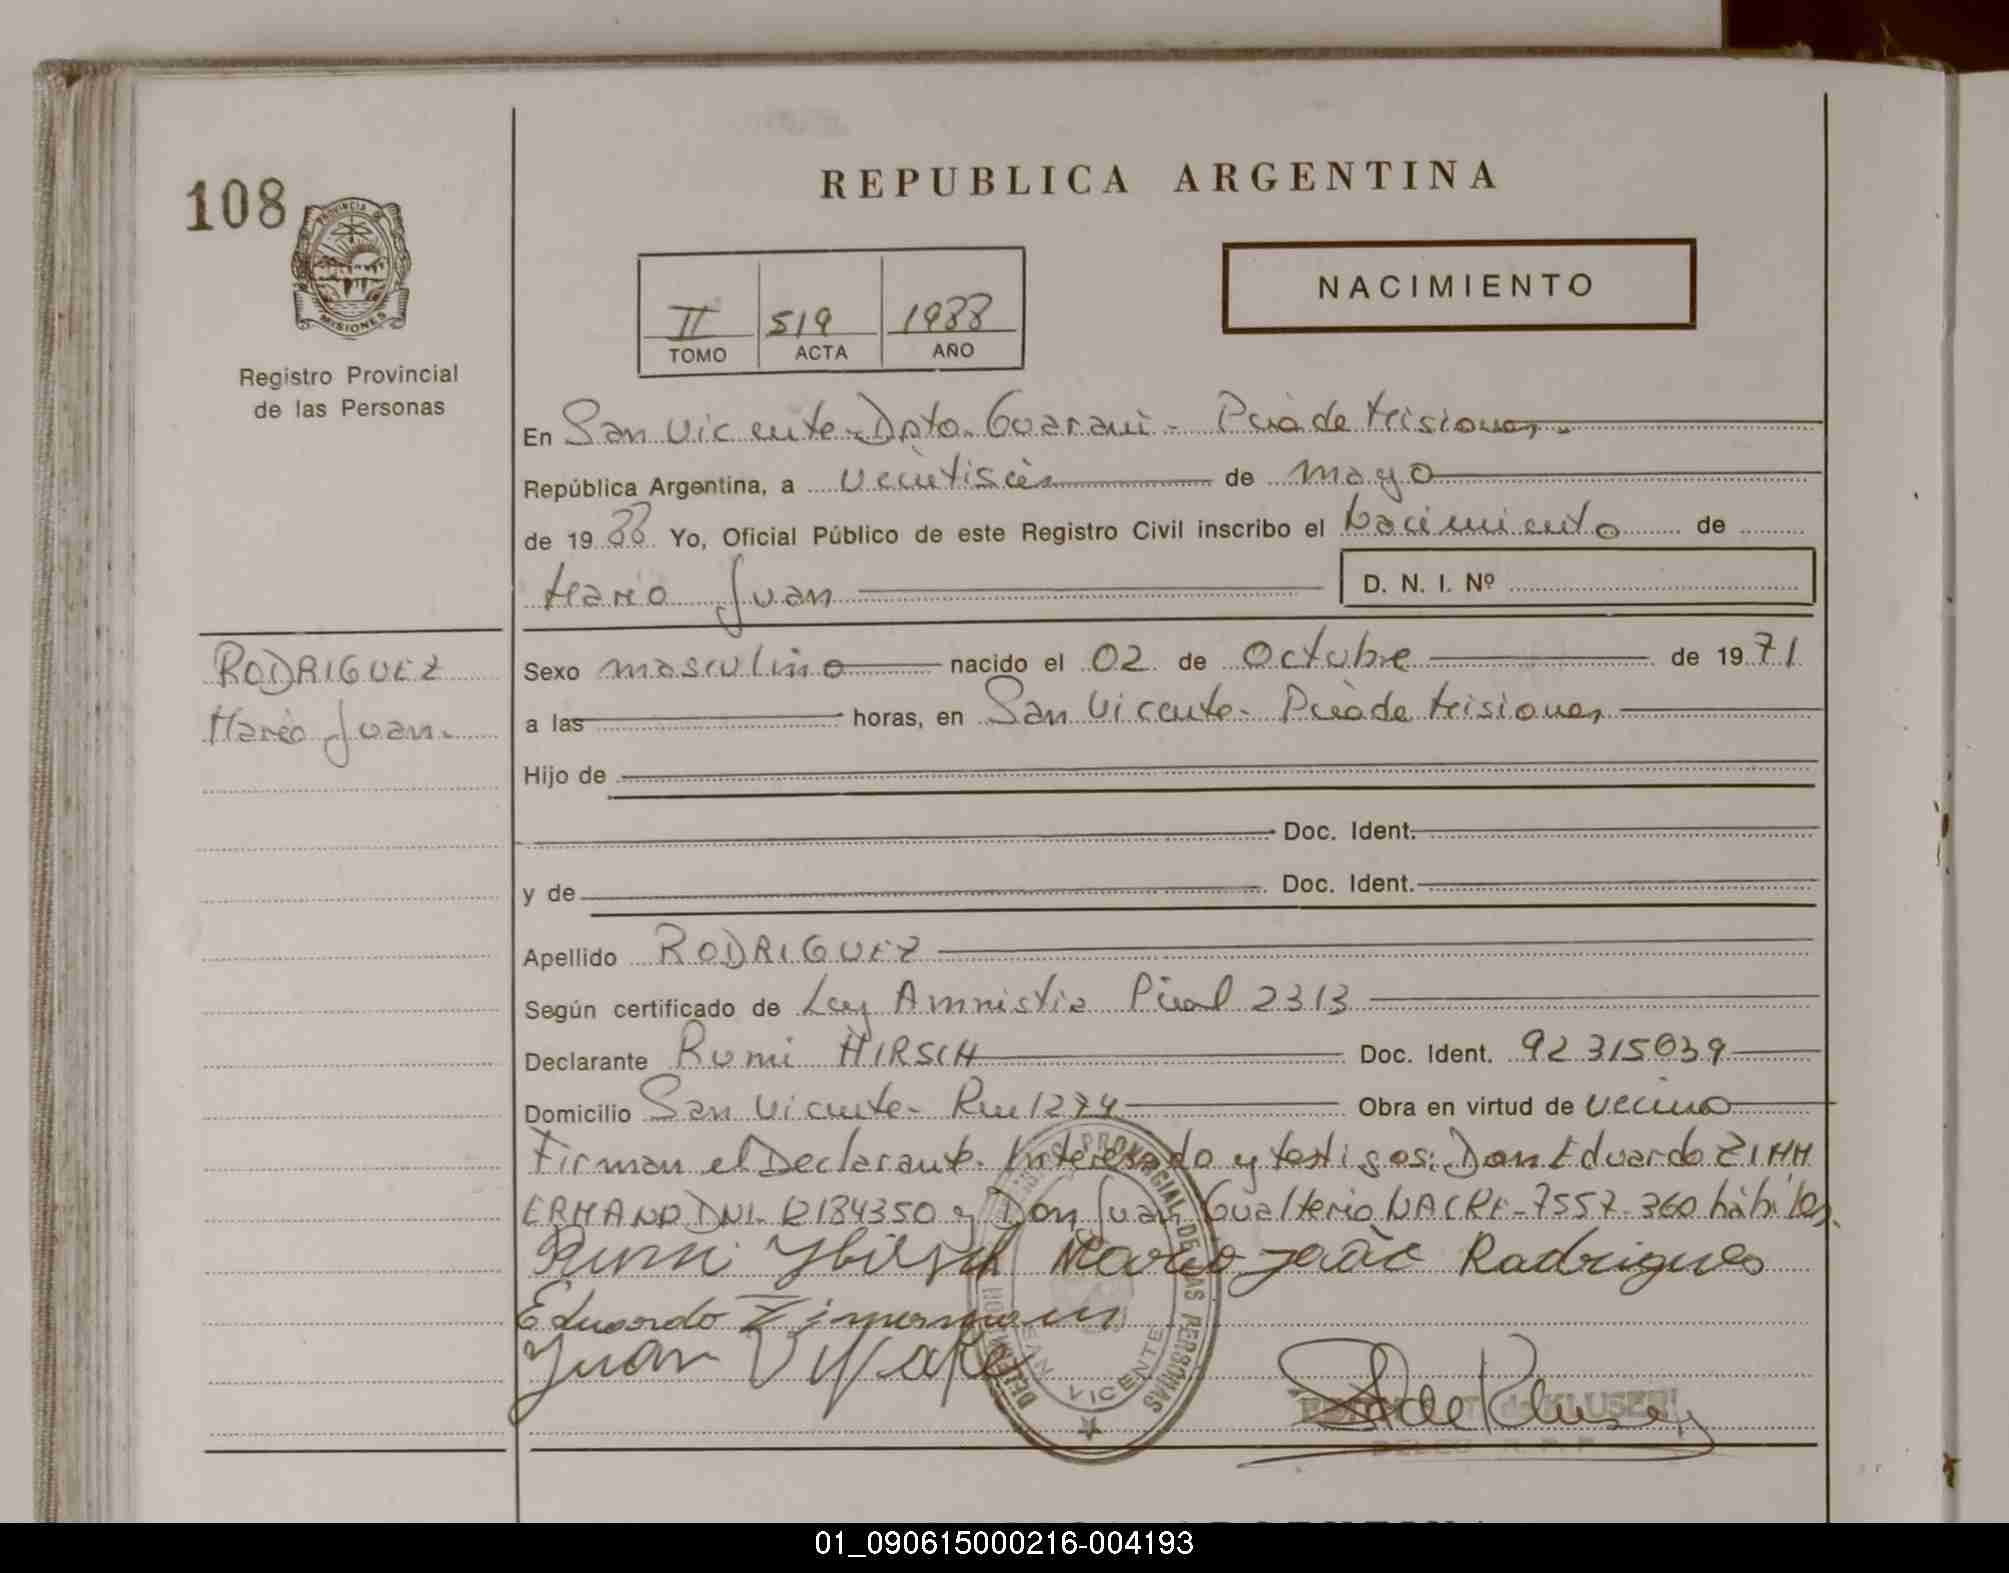 108
PROVINCIA DE
MISIONES
Registro Provincial
de las Personas
REPUBLICA ARGENTINA
II 519 1988
TOMO ACTA AÑO
NACIMIENTO
En San Vicente - Dpto. Guaraní - Pcia de Misiones.
República Argentina, a veintiséis de mayo
de 1988 Yo, Oficial Público de este Registro Civil inscribo el nacimiento de
Mario Juan D. N. I. Nº
RODRIGUEZ
Mario Juan.
Sexo masculino nacido el 02 de Octubre de 1971
a las horas, en San Vicente - Pcia de Misiones
Hijo de
Doc. Ident.
y de Doc. Ident.
Apellido RODRIGUEZ
Según certificado de Ley Amnistia Pcial 2313
Declarante Rumi HIRSCH Doc. Ident. 92.315.039
Domicilio San Vicente - Km 1274 Obra en virtud de vecino
Firman el Declarante. Interesado y testigos: Don Eduardo ZIMM
ERMANN DNI. 12184350 y Don Juan Gualterio 7557.360 hábiles.
Rumi Hirsch Mario Rodrigues
Eduardo Zimermann
Juan
PROVINCIAL DE LAS PERSONAS
SAN VICENTE
de KLUSENER
01_090615000216-004193